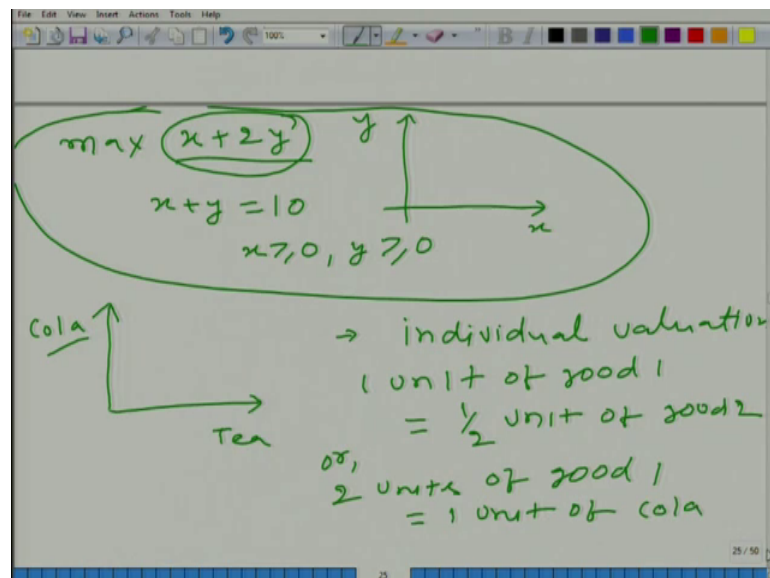 File Edit View Insert Actions Tools Help
100%
B I
max x + 2y y
x + y = 10
x
x ≥ 0, y ≥ 0
Cola
Tea
→ individual valuation
1 unit of good 1
= 1/2 unit of good 2
or,
2 units of good 1
= 1 unit of cola
25 / 50
25